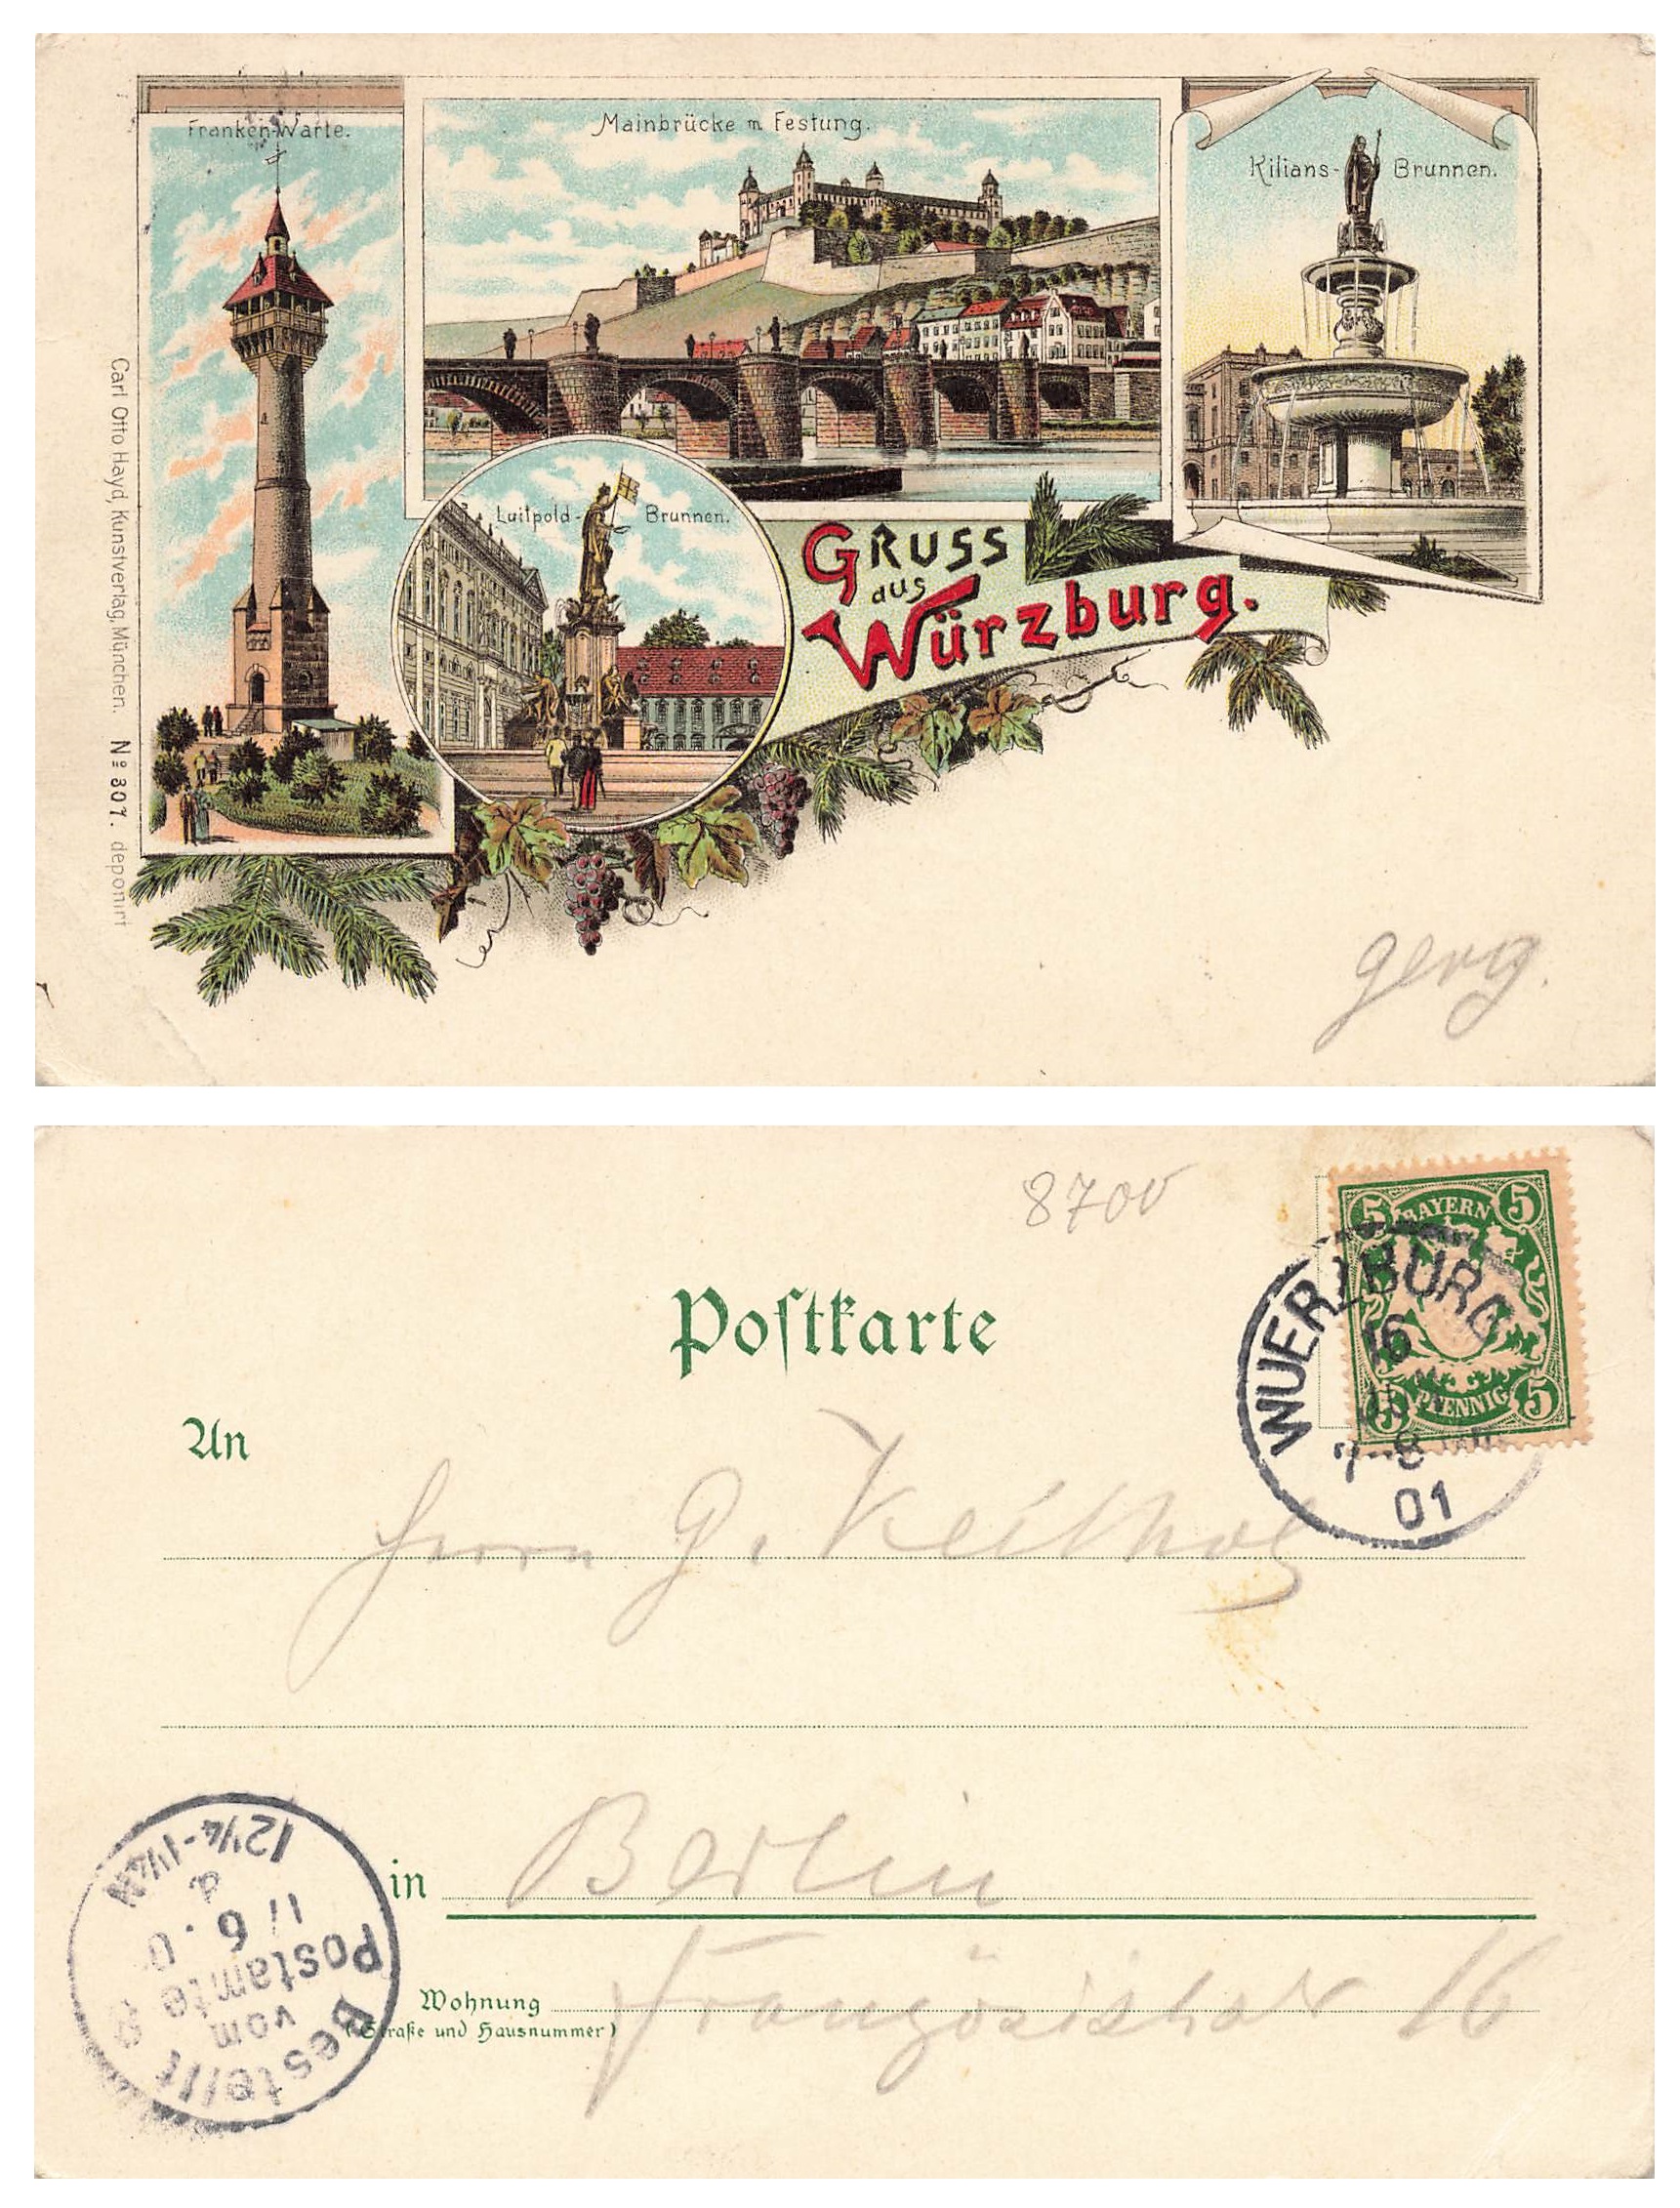 Franken-Warte.
Mainbrücke m Festung.
Kilians-Brunnen.
Luitpold-Brunnen.
GRUSS
aus
Würzburg.
Carl Otto Hayd, Kunstverlag, München. No 307. deponirt
Georg.
8700
BAYERN
5 5
5 5
PFENNIG
WUERZBURG
16
7-8
01
Postkarte
An
Herrn G. Veithol
in Berlin
Wohnung Französischer 16
(Straße und Hausnummer)
Bestellt
vom
Postamte 8
17 6. 0
12¼-1¼N